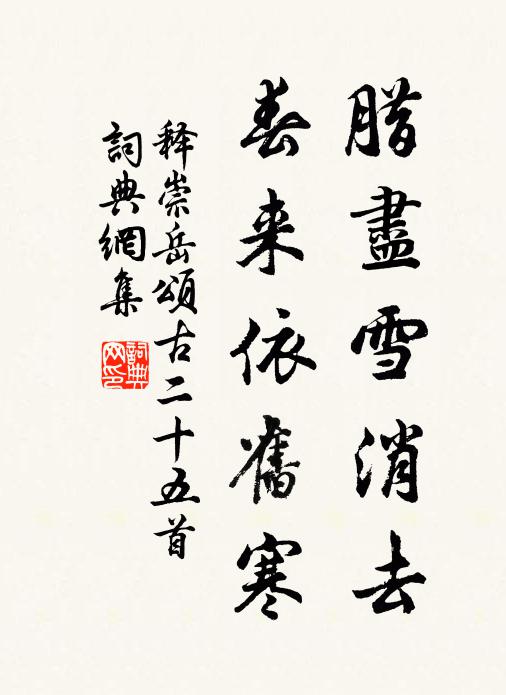 腊盡雪消去
春来依舊寒
释崇岳頌古二十五首
詞典網集
詞典網印